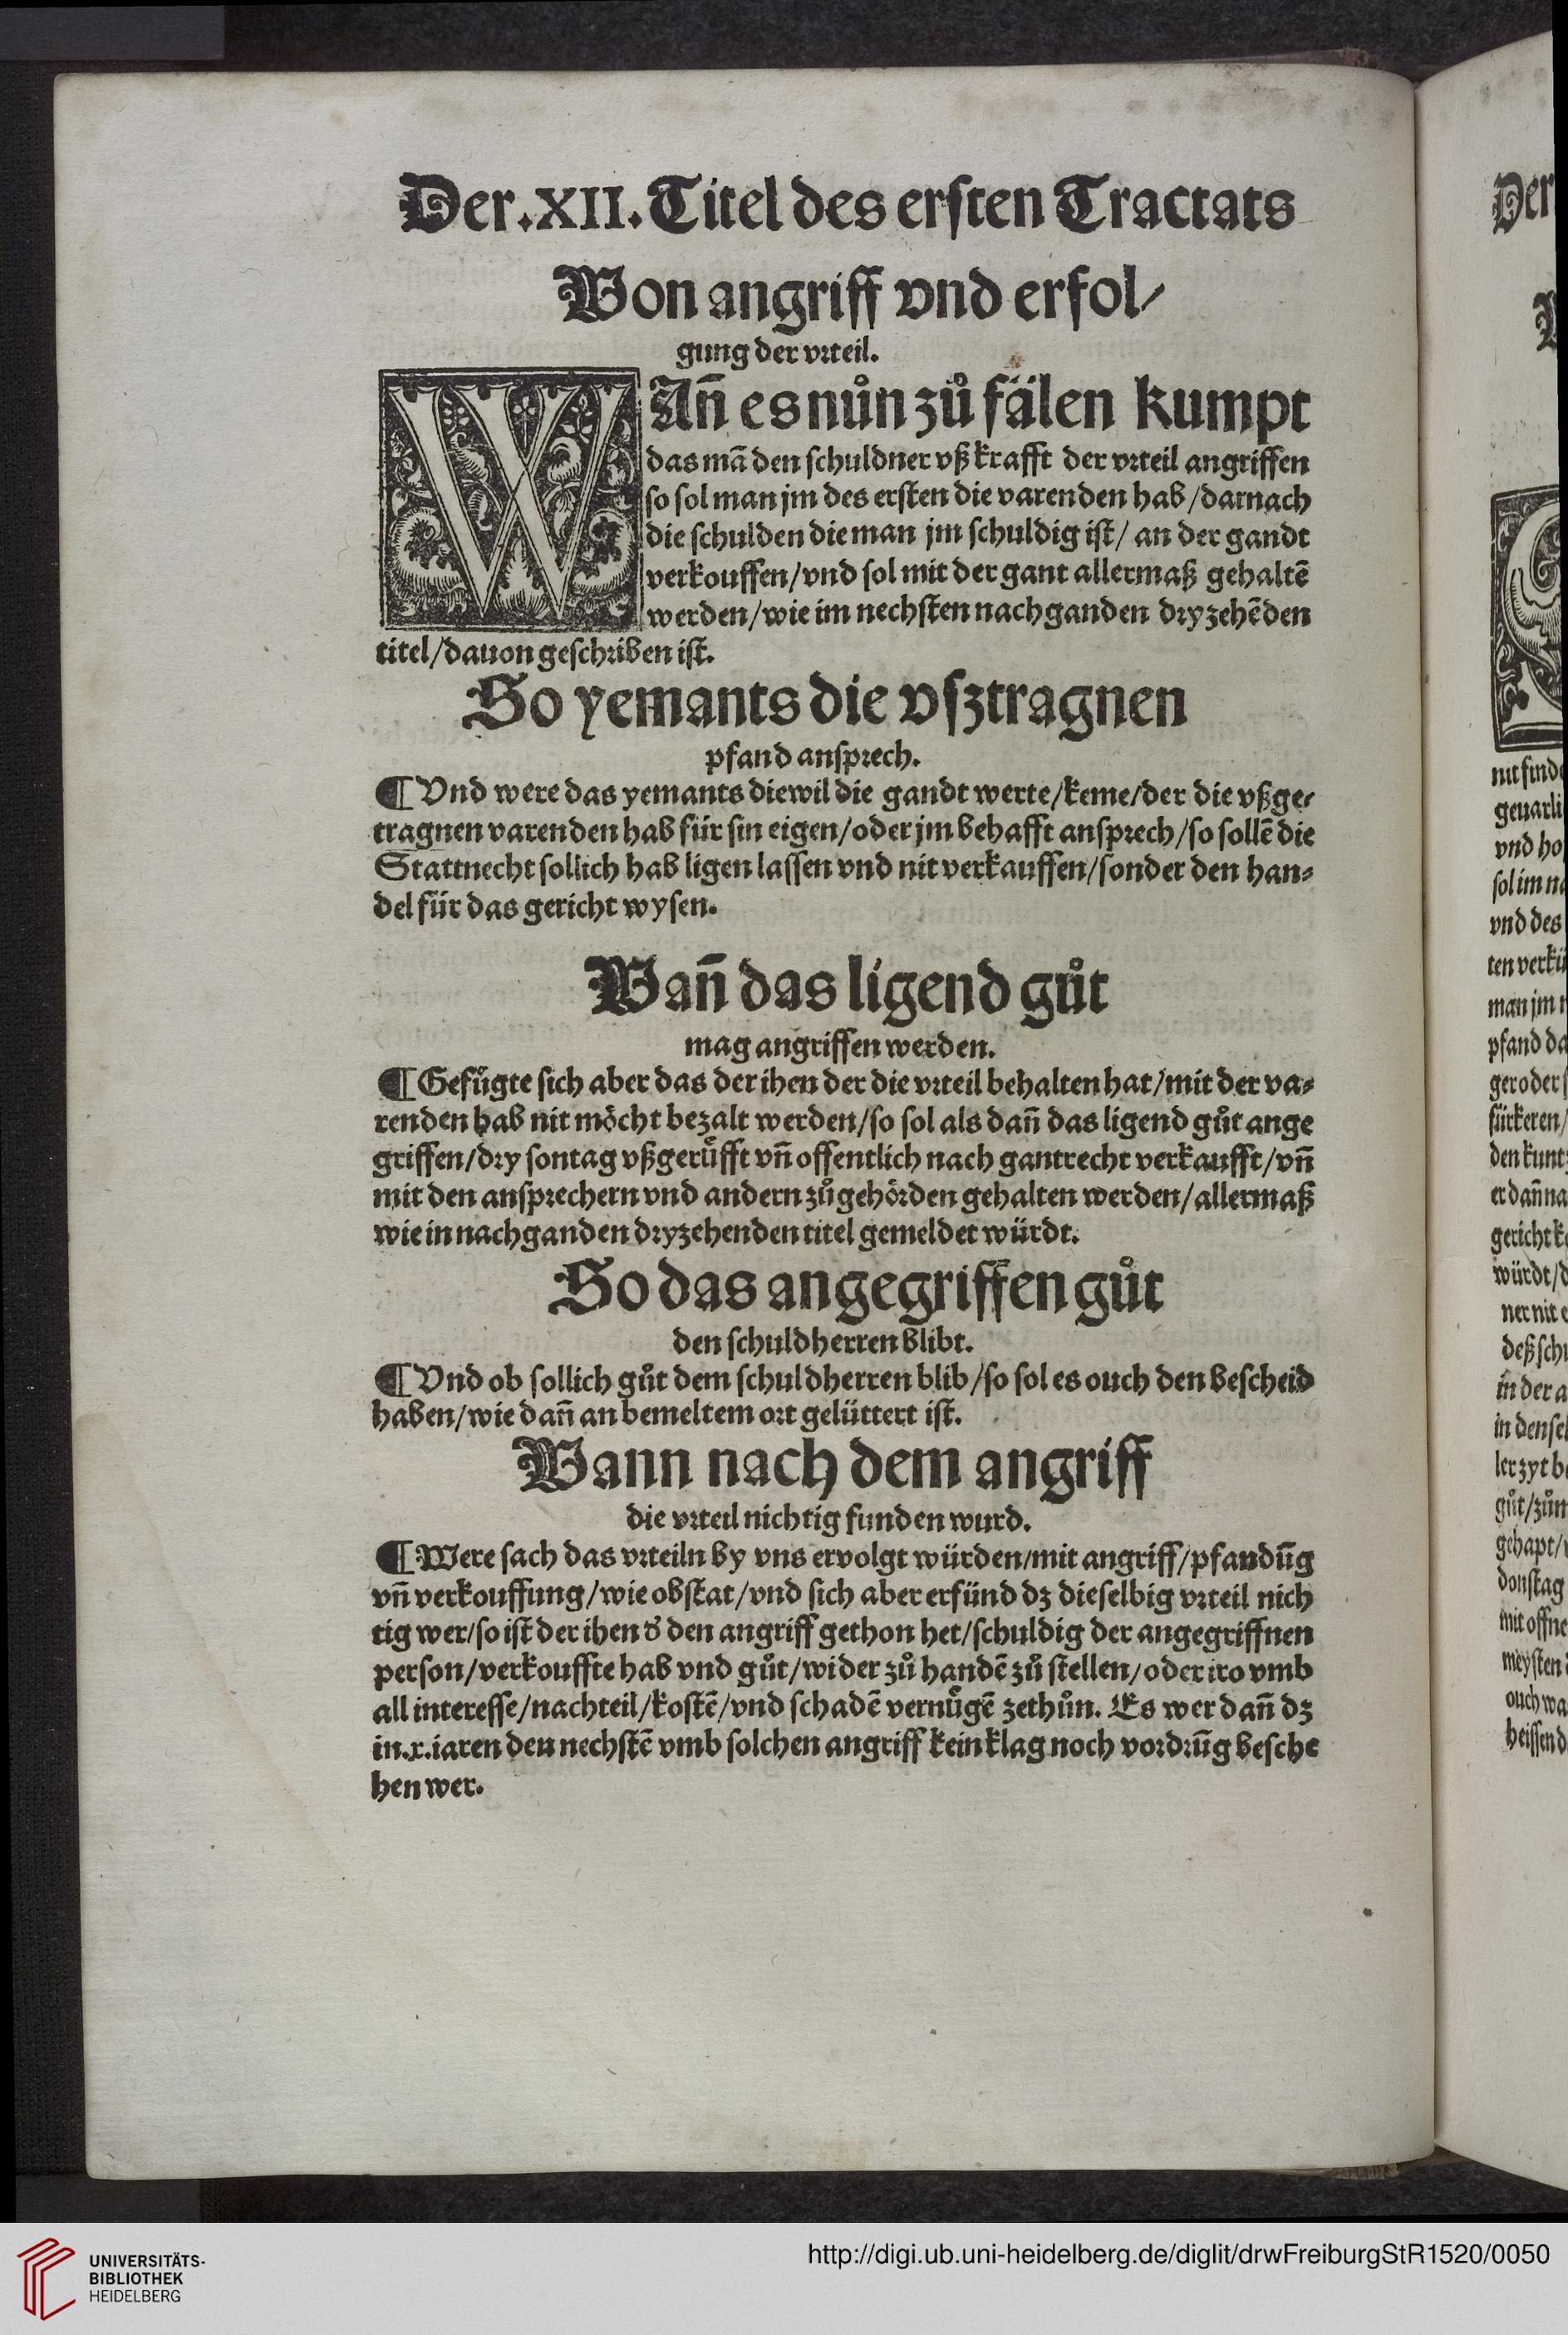 Der.XII.Titel des ersten Tractats
Von angriff vnd erfol/
gung der vrteil.
WAn̄ es nůn zů fälen kumpt
das mā den schuldner vß krafft der vrteil angriffen
so sol man jm des ersten die varenden hab/darnach
die schulden die man jm schuldig ist/ an der gandt
verkouffen/vnd sol mit der gant allermaß gehaltē
werden/wie im nechsten nachganden dryzehēden
titel/dauon geschriben ist.
So yemants die vsztragnen
pfand ansprech.
¶ Vnd were das yemants diewil die gandt werte/keme/der die vßge/
tragnen varenden hab für sin eigen/oder jm behafft ansprech/so sollē die
Stattnecht sollich hab ligen lassen vnd nit verkauffen/sonder den han⸗
del für das gericht wysen.
Wan̄ das ligend gůt
mag angriffen werden.
¶ Gefůgte sich aber das der ihen der die vrteil behalten hat/mit der va⸗
renden hab nit möcht bezalt werden/so sol als dan̄ das ligend gůt ange
griffen/dry sontag vßgerůfft vn̄ offentlich nach gantrecht verkaufft/vn̄
mit den ansprechern vnd andern zůgehörden gehalten werden/allermaß
wie in nachganden dryzehenden titel gemeldet würdt.
So das angegriffen gůt
den schuldherren blibt.
¶ Vnd ob sollich gůt dem schuldherren blib/so sol es ouch den bescheid
haben/wie dan̄ an bemeltem ort gelüttert ist.
Wann nach dem angriff
die vrteil nichtig funden wurd.
¶ Were sach das vrteiln by vns ervolgt würden/mit angriff/pfandūg
vn̄ verkouffung/wie obstat/vnd sich aber erfünd dz dieselbig vrteil nich
tig wer/so ist der ihen d' den angriff gethon het/schuldig der angegriffnen
person/verkouffte hab vnd gůt/wider zů handē zů stellen/oder iro vmb
all interesse/nachteil/kostē/vnd schadē vernůgē zethůn. Es wer dan̄ dz
in.x.iaren den nechstē vmb solchen angriff kein klag noch vordrūg besche
hen wer.
Der
nit find
geuarli
vnd ho
sol im n
vnd des
ten verkü
man jm
pfand da
ger oder
fürkeren/
den kunt
er dan̄ na
gericht k
würdt/d
ner nit e
deß sch
in der a
in densel
ler zyt b
gůt/zům
gehapt/
donstag
mit offne
meysten
ouch wa
heissen d
UNIVERSITÄTS-
BIBLIOTHEK
HEIDELBERG
http://digi.ub.uni-heidelberg.de/diglit/drwFreiburgStR1520/0050